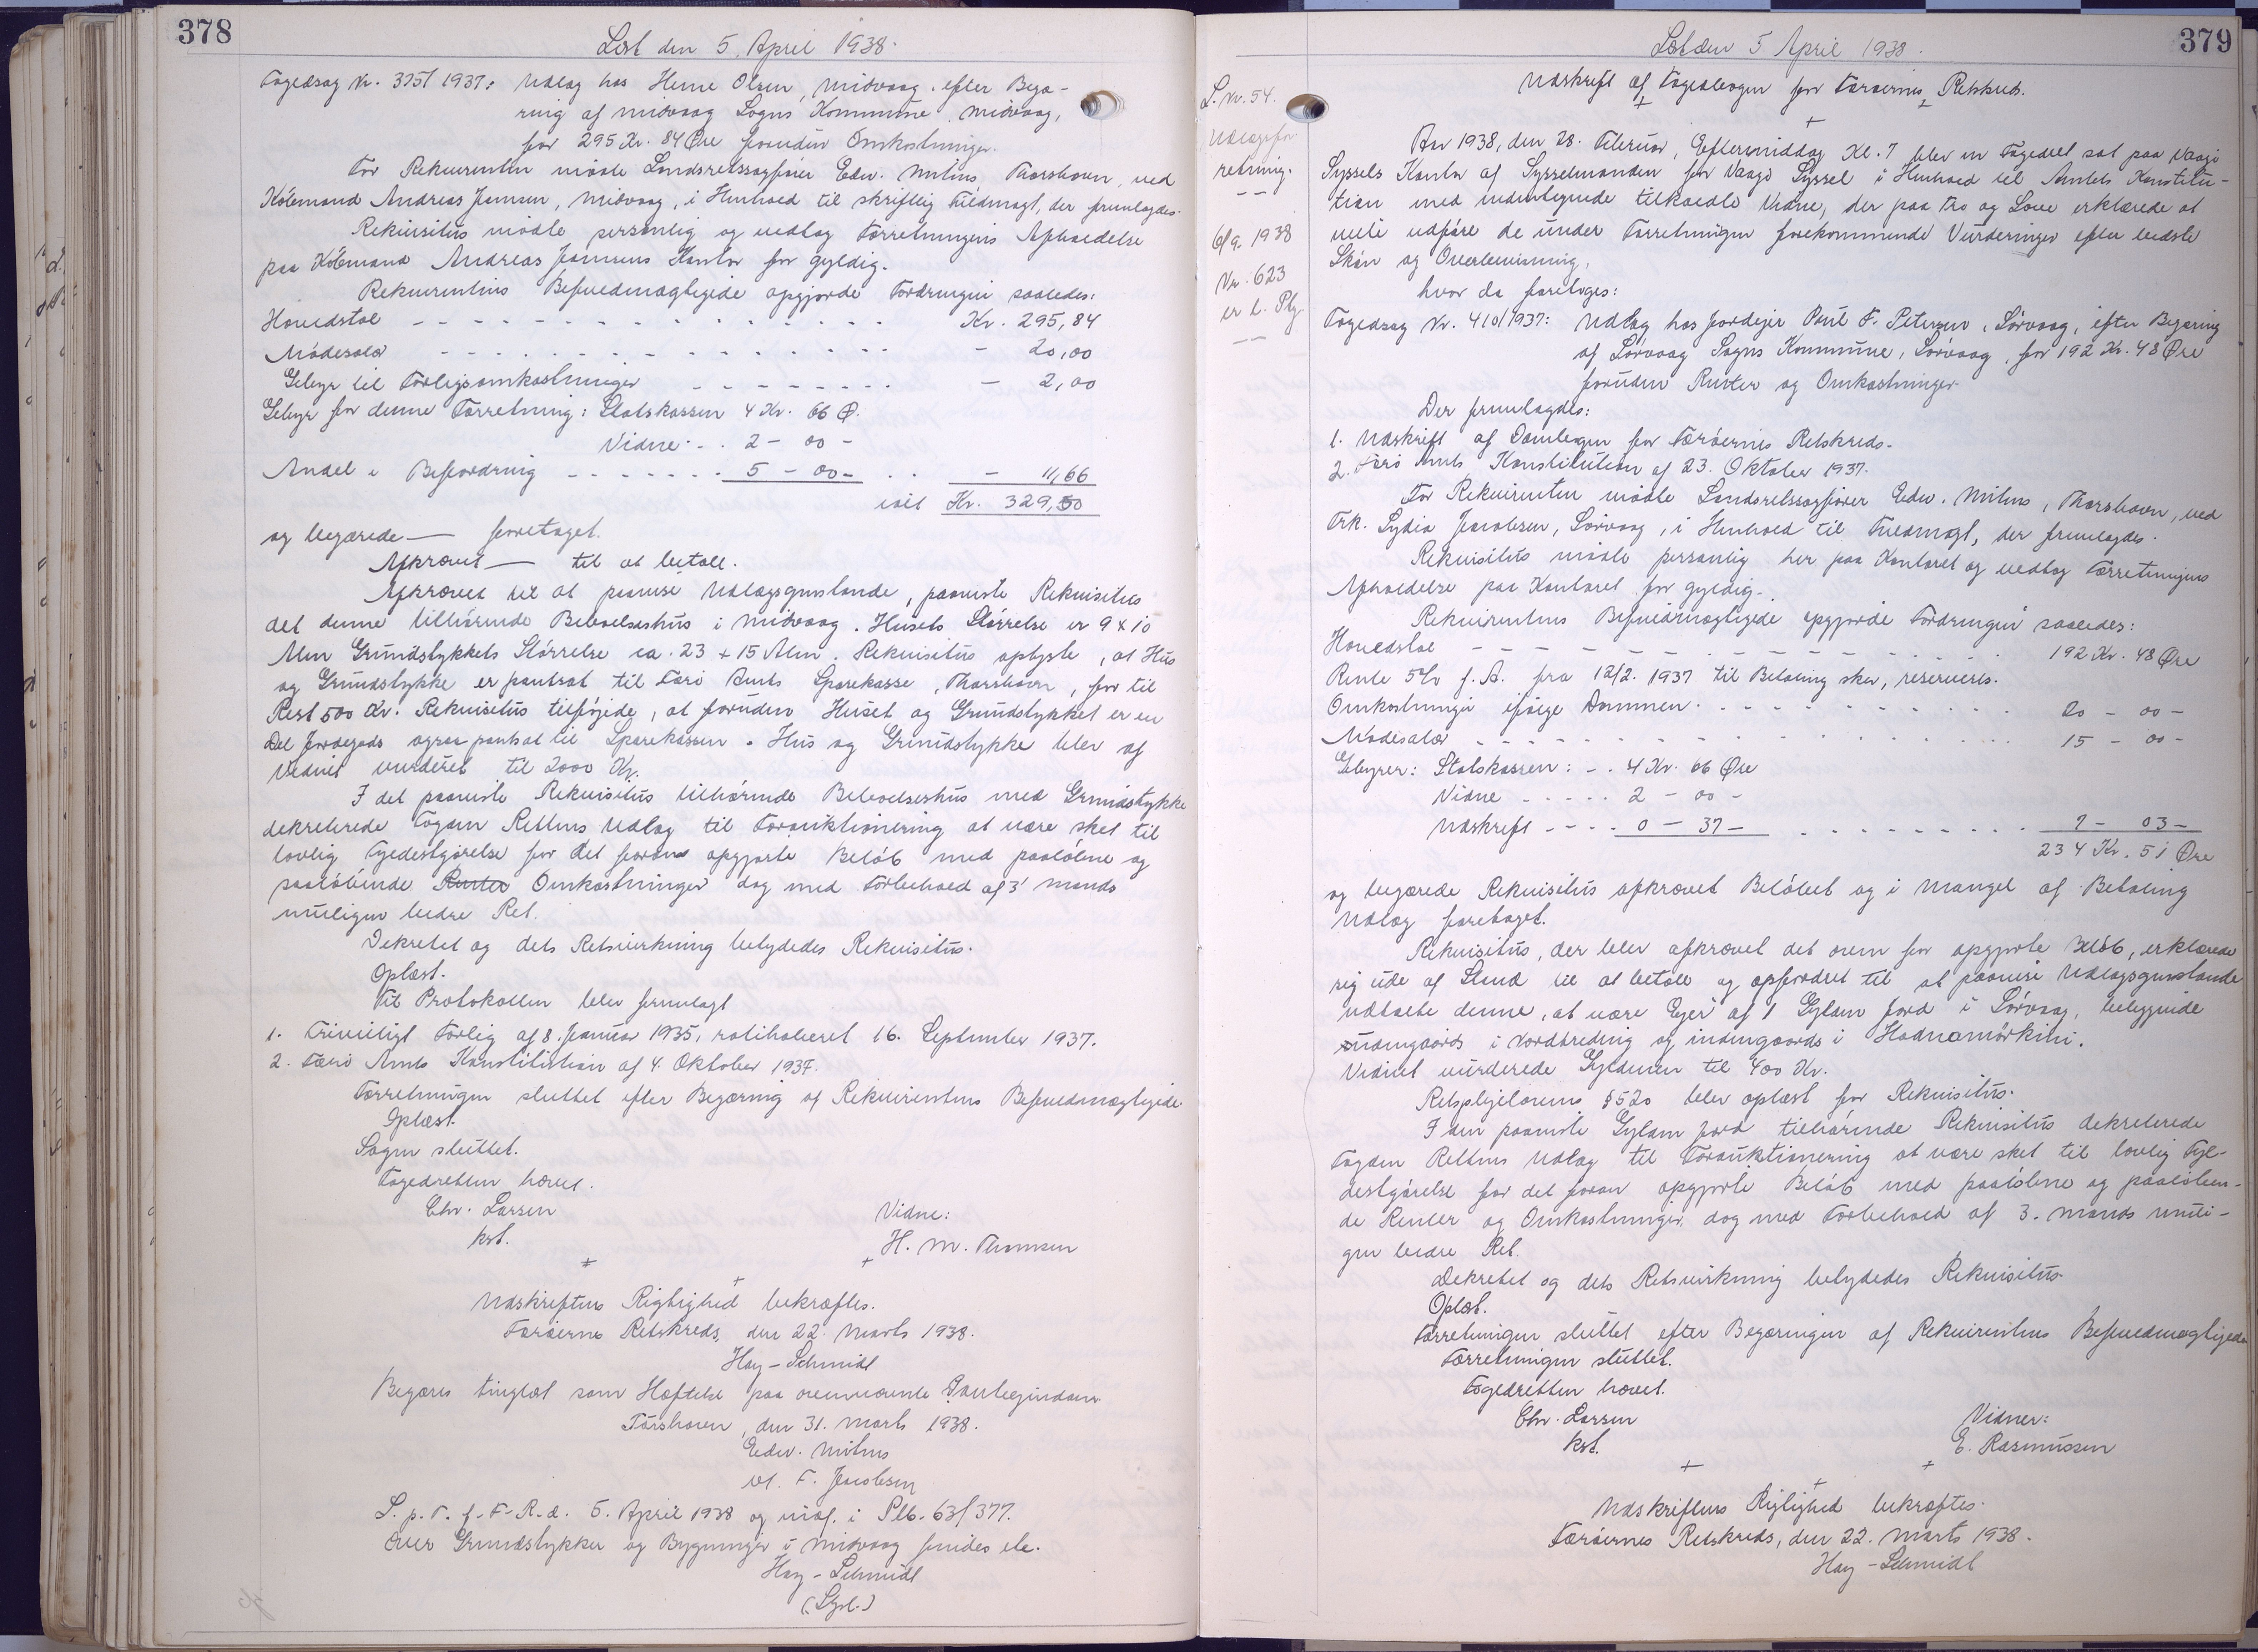 378
Læst den 5. April 1938.
Fogedsag Nr. 375/1937: Udlæg hos Heine Olsen, Midvaag, efter Begæ-
ring af Midvaag Sogns Kommune, Midvaag,
for 295 Kr. 84 Øre foruden Omkostninger.
For Rekvirenten mödte Landsretssagförer Edw. Mitens, Thorshavn, ved
Köbmand Andreas Joensen, Midvaag, i Henhold til skriftlig Fuldmagt, der fremlagdes.
Rekvisitus mödte personlig og vedtog Forretningens Afholdelse
paa Köbmand Andreas Joensens Kontor for gyldig.
Rekvirentens Befuldmægtigede opgjorde Fordringen saaledes:
Hovedstol - - - - Kr. 295,84
Mödesalær - - - - - 20,00
Gebyr til Forligsomkostninger - - - - - 2,00
Gebyr for denne Forretning: Statskassen 4 Kr. 66 Ø.
Vidne - . 2 - 00 -
Andel i Befordring - - - - 5 - 00 - . . - 11,66
ialt Kr. 329,50
og begærede — foretaget.
Afkrævet — til at betale.
Afkrævet til at paavise Udlægsgenstande, paaviste Rekvisitus
det denne tilhörende Beboelseshus i Midvaag. Husets Störrelse er 9 x 10
Alen Grundstykkets Störrelse ca. 23 + 15 Alen. Rekvisitus oplyste, at Hus
og Grundstykke er pantsat til Færö Amts Sparekasse, Thorshavn, for til
Rest 500 Kr. Rekvisitus tilföjede, at foruden Huset og Grundstykket er en
Del Jordegods ogsaa pantsat til Sparekassen. Hus og Grundstykke blev af
Vidnet vurderet til 2000 Kr.
I det paaviste Rekvisitus tilhörende Beboelseshus med Grundstykke
dekreterede Fogden Rettens Udlæg til Forauktionering at være sket til
lovlig Fyldestgörelse for det foran opgjorte Belöb med paalöbne og
paalöbende Renter Omkostninger dog med Forbehold af 3' Mands
muligen bedre Ret.
Dekretet og dets Retsvirkning betydedes Rekvisitus.
Oplæst.
Til Protokollen blev fremlagt
1. Frivilligt Forlig af 8. Januar 1935, ratihaberet 16. September 1937.
2. Færö Amts Konstitution af 4. Oktober 1937.
Forretningen sluttet efter Begæring af Rekvirentens Befuldmægtigede
Oplæst.
Sagen sluttet.
Fogedretten hævet.
Chr. Larsen
kst.
Vidne:
H. M. Thomsen
Udskriftens Rigtighed bekræftes.
Færöernes Retskreds, den 22. Marts 1938.
Hay-Schmidt
Begæres tinglæst som Hæftelse paa ovennævnte
Tórshavn, den 31. Marts 1938.
Edw. Mitens
v/ F. Jacobsen
L. p. T. f. F. R. d. 5. April 1938 og indf. i Ptb. 63/377.
Over Grundstykker og Bygninger i Midvaag findes ele.
Hay-Schmidt
(Sgd.)
379
Læst den 5 April 1938.
L. Nr. 54.
Udlægsfor-
retning.
6/9. 1938
Nr. 623
Udskrift af Fogedbogen for Færöernes Retskreds.
Aar 1938, den 28. Februar, Eftermiddag Kl. 7 blev en Fogedret sat paa Vaagö
Syssels Kontor af Sysselmanden for Vaagö Syssel i Henhold til Amtets Konstitu-
tion med undertegnede tilkaldte Vidne, der paa Tro og Love erklærede at
ville udföre de under Forretningen forekommende Vurderinger efter bedste
Skön og Overbevisning,
hvor da foretoges:
Fogedsag Nr. 410/1937: Udlæg hos Jordejer Poul F. Petersen, Sörvaag, efter Begæring
af Sörvaag Sogns Kommune, Sörvaag, for 192 Kr. 48 Øre
foruden Renter og Omkostninger
Der fremlagdes:
1. Udskrift af Dombogen for Færöernes Retskreds.
2. Færö Amts Konstitution af 23. Oktober 1937.
For Rekvirenten mödte Landsretssagförer Edw. Mitens, Thorshavn, ved
Frk. Lydia Jacobsen, Sörvaag, i Henhold til Fuldmagt, der fremlagdes.
Rekvisitus mödte personlig her paa Kontoret og vedtog Forretningens
Afholdelse paa Kontoret for gyldig.
Rekvirentens Befuldmægtigede opgjorde Fordringen saaledes:
Hovedstol - - - - 192 Kr. 48 Øre
Rente 5% p. A. fra 12/2. 1937 til Betaling sker, reserveres.
Omkostninger ifölge Dommen - - - - 20 - 00 -
Mödesalær - - - - 15 - 00 -
Gebyrer: Statskassen: - . 4 Kr. 66 Øre
Vidne - - - - 2 - 00 -
Udskrift - - - - 0 - 37 - - - - 7 - 03 -
234 Kr. 51 Øre
og begærede Rekvisitus afkrævet Belöbet og i Mangel af Betaling
Udlæg foretaget.
Rekvisitus, der blev afkrævet det oven for opgjorte Belöb, erklærede
sig ude af Stand til at betale og opfordret til at paavise Udlægsgenstande
udtalte denne, at være Ejer af 1 Gylden Jord i Sörvaag, beliggende
udengaards i Nordbreding og indengaards i Hadnamörkini.
Vidnet vurderede Gyldenen til 400 Kr.
Retsplejelovens § 520 blev oplæst for Rekvisitus.
I den paaviste Gylden Jord tilhörende Rekvisitus dekreterede
Fogden Rettens Udlæg til Forauktionering at være sket til lovlig Fyl-
destgörelse for det foran opgjorte Belöb med paalöbne og paalöben-
de Renter og Omkostninger, dog med Forbehold af 3. Mands muli-
gen bedre Ret.
Dekretet og dets Retsvirkning betydedes Rekvisitus
Oplæst.
Forretningen sluttet efter Begæringen af Rekvirentens Befuldmægtigede
Forretningen sluttet.
Fogedretten hævet.
Chr. Larsen
kst.
Vidner:
E. Rasmussen
Udskriftens Rigtighed bekræftes.
Færöernes Retskreds, den 22. Marts 1938.
Hay-Schmidt